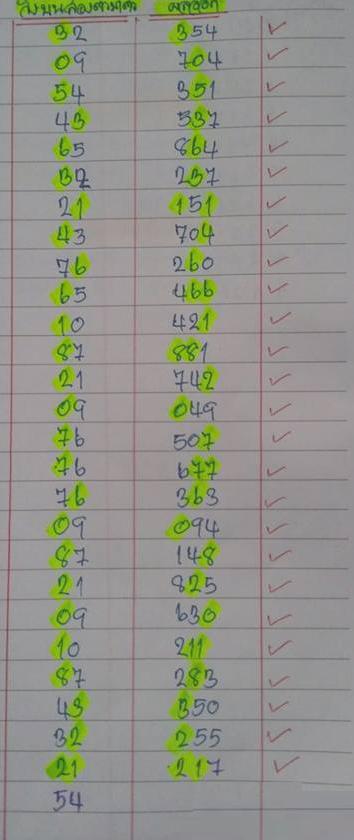 วิ่งบนสองตามกด ผลออก
32 354
09 704
54 351
43 537
65 864
32 237
21 151
43 704
76 260
65 466
10 421
87 881
21 742
09 049
76 507
76 677
76 363
09 094
87 148
21 825
09 630
10 211
87 283
43 350
32 255
21 217
54